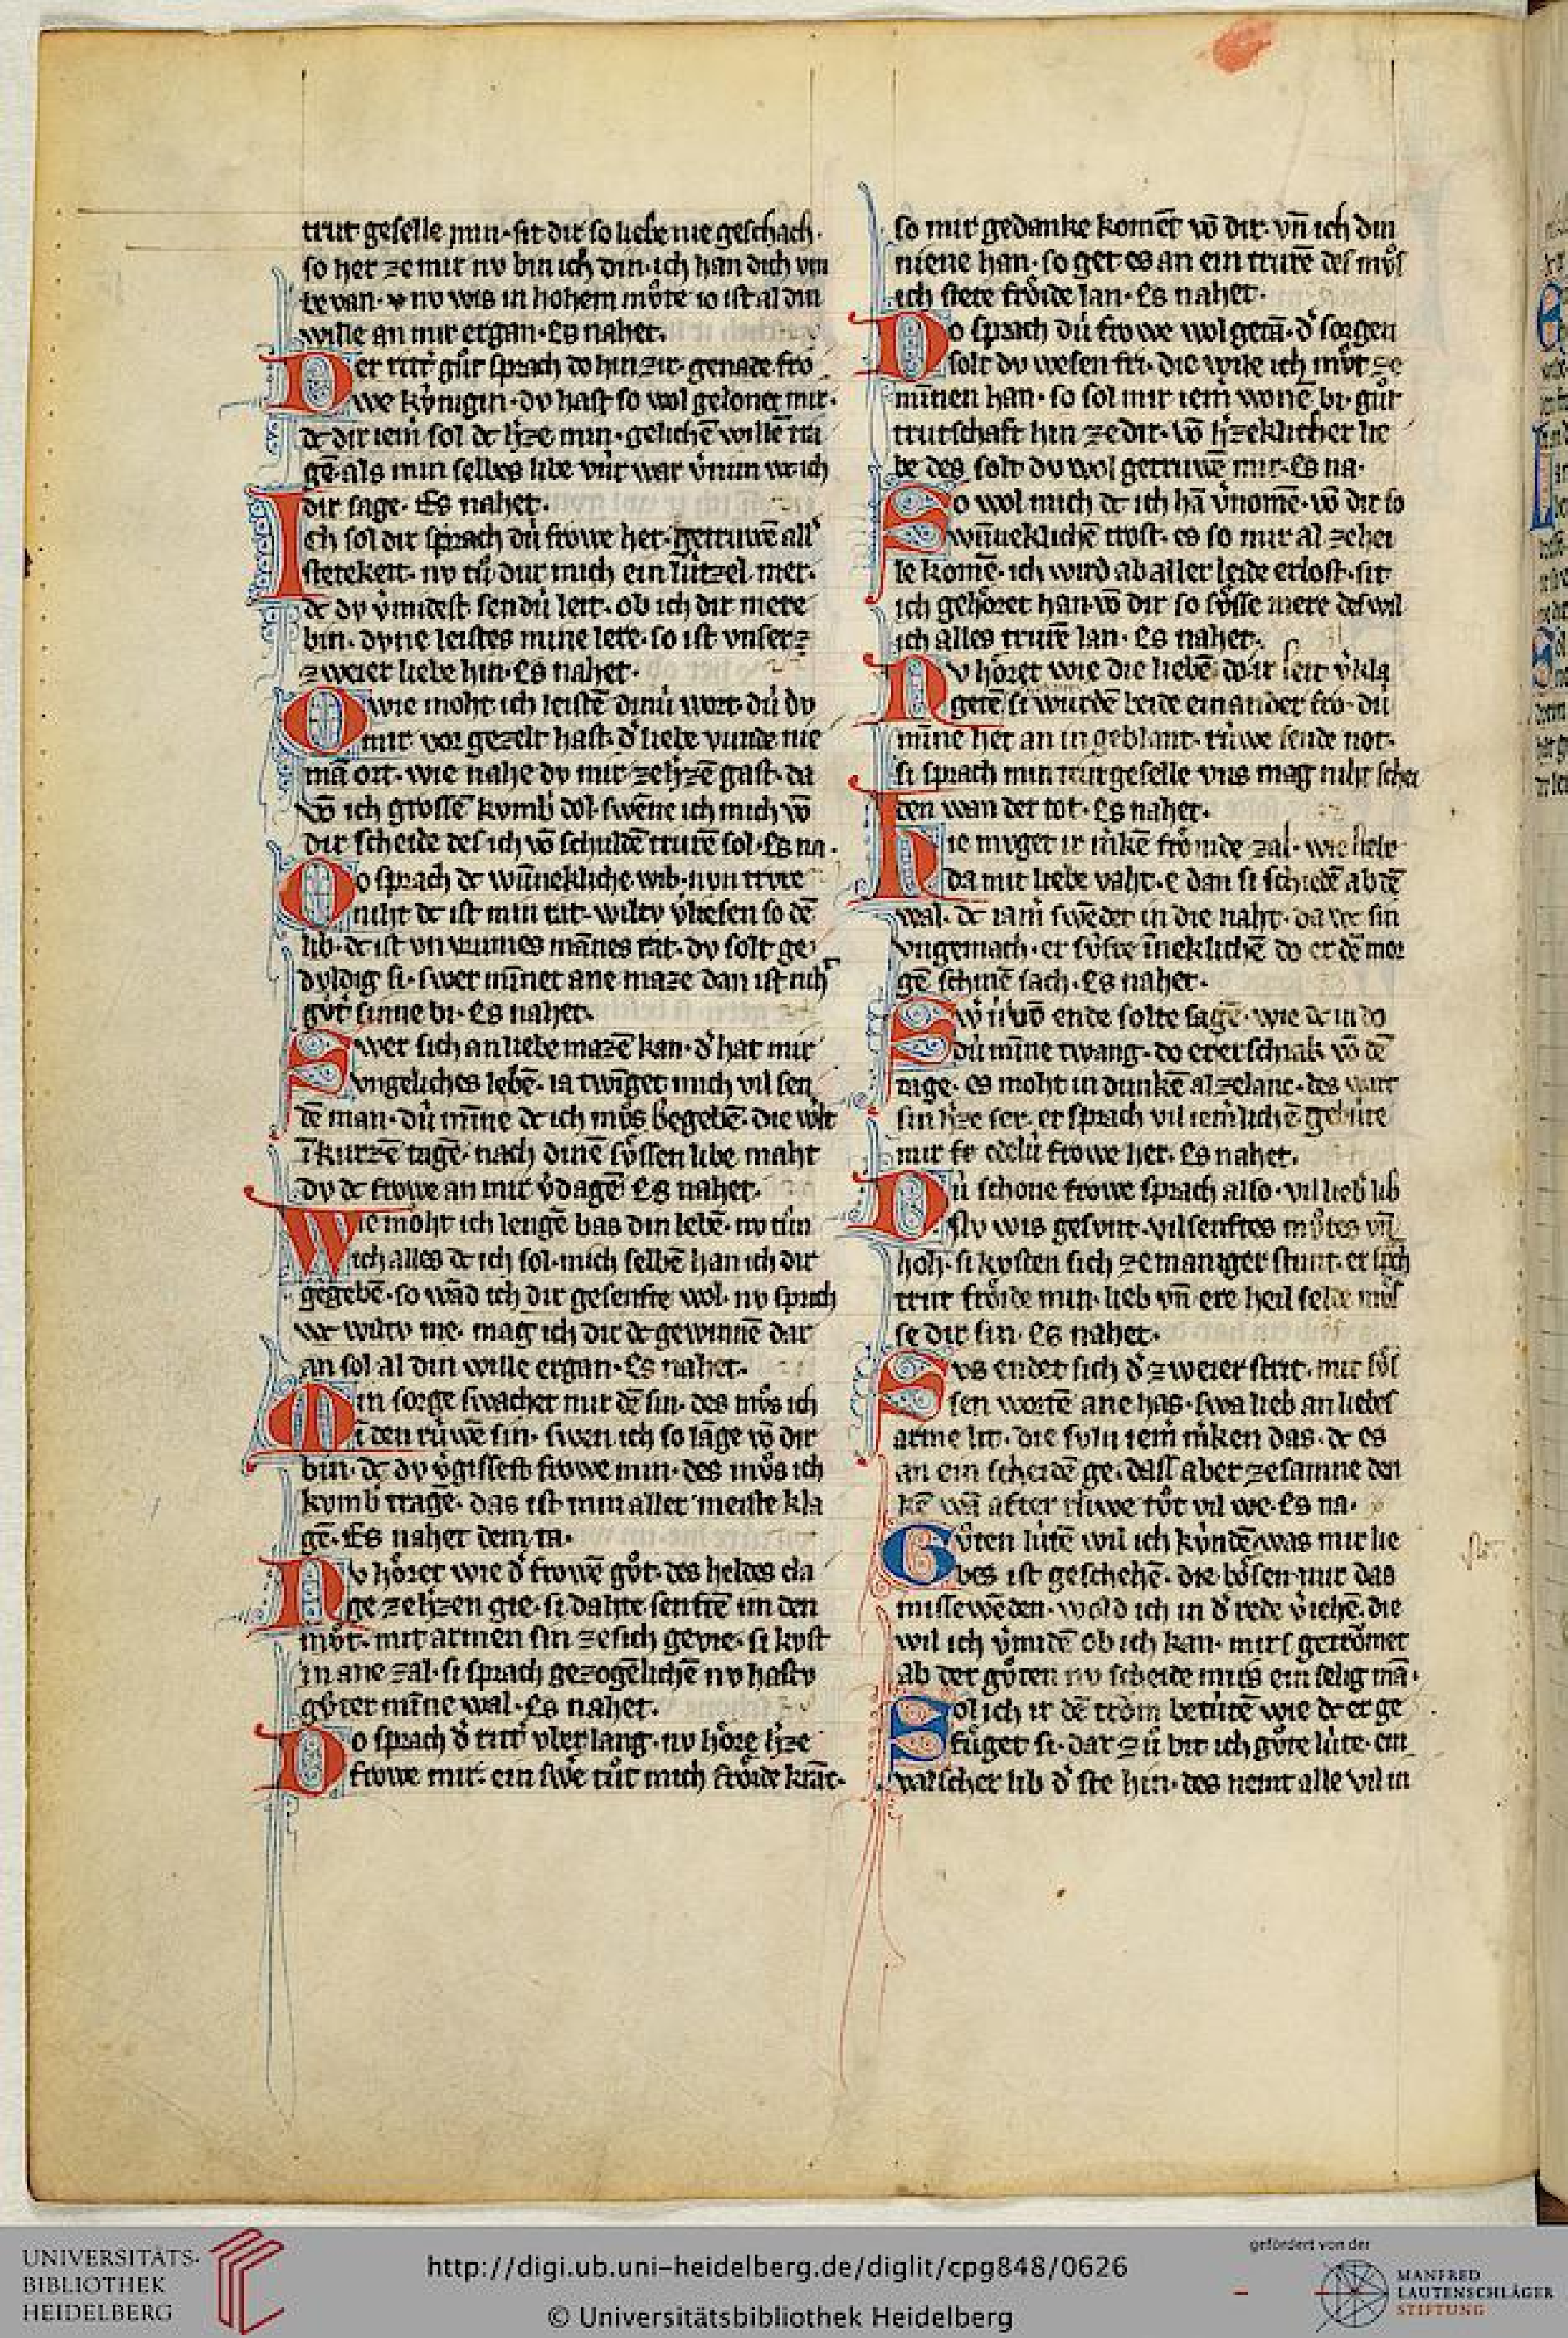 trut geselle min · sit dir so liebe nie geschach ·
so her ze mir nv bin ich din · ich han dich vm
be van · nv wis in hohem mv̊te io ist al din
wille an mir ergan · Es nahet.
Der ritt̾ gůt sprach do hin zir · genade fro
we kv́nigin · dv hast so wol gelonet mir ·
dc dir iem̾ sol dc h̾ze min · gelichē willē tra
gē · als min selbes libe vúr war v̾nim wc ich
dir sage · Es nahet ·
Ich sol dir sprach dú frowe her · getruwē all̾
stetekeit · nv tů dur mich ein lútzel mer ·
dc dv v̾midest sendú leit · ob ich dir mere
bin · dvne leistes mine lere · so ist vnser
zweier liebe hin · Es nahet ·
Owie moht ich leistē dinú wort · dú dv
mir vor gezelt hast · d̾ liebe vunde nie
mā ort · wie nahe dv mir ze h̾zē gast · da
vō ich grossē kvmb̾ dol · swēne ich mich vō
dir scheide des ich vō schuldē trurē sol · Es na ·
Do sprach dc wiñnekliche wib · nvn trvre
niht dc ist min rat · wiltv v̾liesen so dē
lib · dc ist vn wises mānes rat · dv solt ge
dvldig si · swer miñet ane maze dan ist nih̾
gv̊t̾ sinne bi · Es nahet ·
Swer sich an liebe mazē kan · d̾ hat mir
vngeliches lebē · ia twīget mich vil sen
dē man · dú miñe dc ich mv̊s begebē · die w̾lt
ī kurzē tagē · nach dinē sv̊ssen libe maht
dv dc frowe an mir v̾dagē Es nahet ·
Wie möht ich lengē bas din lebē · nv tůn
ich alles dc ich sol · mich selbē han ich dir
gegebē · so wād ich dir gesenfte wol · nv sprich
wc wiltv me · mag ich dir dc gewinnē dar
an sol al din wille ergan · Es nahet ·
Min sorge swachet mir dē sin · des mv̊s ich
ī den rúwē sin · swen ich so lāge vō dir
bin · dc dv v̾gissest frowe min · des mv̊s ich
kvmb̾ tragē · das ist min aller meiste kla
gē · Es nahet dem ta ·
Nv höret wie d̾ frowē gůt · des heldes cla
ge ze h̾zen gie · si dahte senftē im den
mv̊t · mit armen sin ze sich gevie · si kvst
in ane zal · si sprach gezogēlichē nv hastv
gv̊ter miñe wal · Es nahet ·
Do sprach d̾ ritt̾ vber lang · nv höre h̾ze
frowe mir · ein swe̾ tůt mich fröide krāc ·
so mir gedanke komēt vō dir · vñ ich din
niene han · so get es an ein trurē des mv̊s
ich stete fröide lan · Es nahet ·
Do sprach dú frowe wol getā · d̾ sorgen
solt dv wesen fri · die wile ich mv̊t ze
miñen han · so sol mir iem̾ wonē bi · gůt
trutschaft hin ze dir · vō h̾zeklicher lie
be des solt dv wol getruwē mir · Es na ·
So wol mich dc ich hā v̾nomē · vō dir so
wiñneklichē trost · es so mir al ze hei
le komē · ich wird ab aller leide erlost · sit
ich gehöret han vō dir so sv̊sse mere des wil
ich alles trurē lan · Es nahet ·
Nv höret wie die liebē do ir leit v̾kla
getē si wurdē beide einander fro · dú
miñe het an in geblant · rúwe sende not ·
si sprach min trut geselle vns mag niht schei
den wan der tot · Es nahet ·
Hie mvget ir m̾kē frömde zal · wie liebe
da mit liebe vaht · e dan si schiedē ab dē
wal · dc iam̾ swēdet in die naht · da wc sin
vngemach · er sv́fte ineklichē do er dē mor
gē schinē sach · Es nahet ·
Sw̾ úb̾ ende solte sagē · wie dc in do
dú miñe twang · do er erschrak vō dē
tage · es moht in dunkē al ze lanc · des wart
sin h̾ze ser · er sprach vil iem̾lichē gebúte
mir edelú frowe her · Es nahet ·
Dú schone frowe sprach also · vil lieb̾ lib
Nv wis gesvnt · vil senftes mv̊tes vñ
hoh · si kvsten sich ze maniger stunt · er sp̾ch
trut fröide min · lieb vñ ere heil selde mv̊s
se dir sin · Es nahet ·
Svs endet sich d̾ zweier strit · mit sv̊s
sen wortē ane has · swa lieb an liebes
arme lit · die suln iem̾ m̾ken das · dc es
an ein scheidē ge · das s aber ze samne den
kē wā after rúwe tůt vil we · Es na ·
Gv̊ten lútē wil ich kv́ndē was mir lie
bes ist geschehē · die bösen mir das
misse wēden · wold ich in d̾ rede v̾iehē · die
wil ich v̾midē ob ich kan · mirs getrömet
ab der gv̊ten nv scheide mirs ein selig mā ·
Sol ich ir dē tröm betútē wie dc er ge
fůget si · dar zů bit ich gv̊te lúte · ein
valscher lib d̾ ste hin · des nemt alle vil in
UNIVERSITÄTS-
BIBLIOTHEK
HEIDELBERG
http://digi.ub.uni-heidelberg.de/diglit/cpg848/0626
© Universitätsbibliothek Heidelberg
gefördert von der
MANFRED
LAUTENSCHLÄGER
STIFTUNG